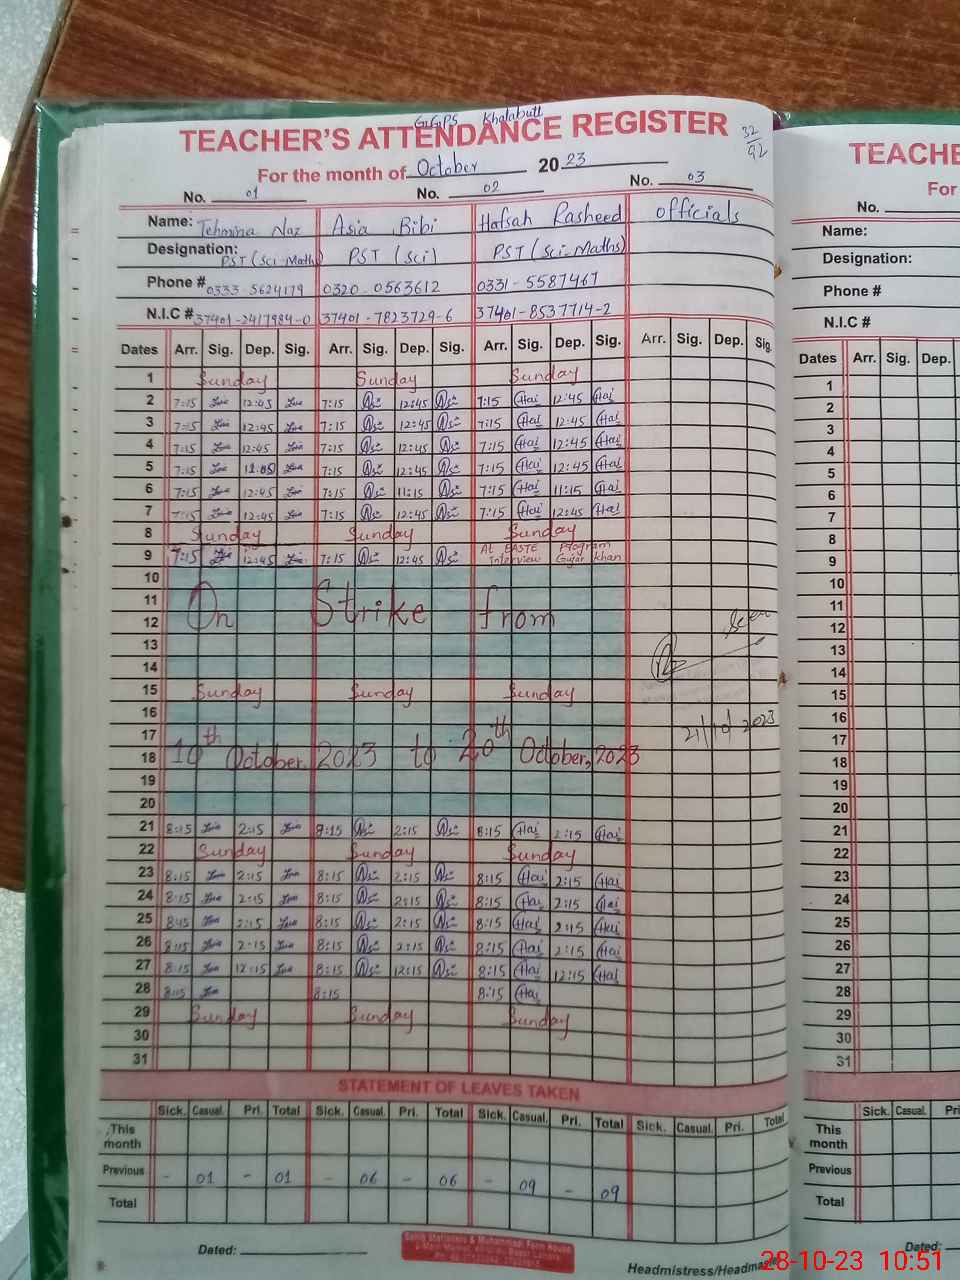 G.G.P.S Khalabutt
TEACHER'S ATTENDANCE REGISTER
32/92
For the month of October 2023
No. 01 No. 02 No. 03
Name: Tehmina Naz Asia Bibi Hafsah Rasheed officials
Designation: PST (Sci-Math) PST (Sci) PST (Sci-Maths)
Phone # 0333-5624179 0320-0563612 0331-5587467
N.I.C # 37401-2417984-0 37401-7823729-6 37401-8537714-2
Dates Arr. Sig. Dep. Sig. Arr. Sig. Dep. Sig. Arr. Sig. Dep. Sig. Arr. Sig. Dep. Sig.
1 Sunday Sunday Sunday
2 7:15 12:45 7:15 12:45 7:15 12:45
3 7:15 12:45 7:15 12:45 7:15 12:45
4 7:15 12:45 7:15 12:45 7:15 12:45
5 7:15 7:15 12:45 7:15 12:45
6 7:15 12:45 7:15 11:15 7:15 11:15
7 7:15 12:45 7:15 12:45 7:15 12:45
8 Sunday Sunday Sunday
9 7:15 12:45 7:15 12:45 At Program interview Gujar khan
10
11
12 On Strike from
Seen
13
14
15 Sunday Sunday Sunday
16
17
21/10/2023
18 10th October, 2023 to 20th October, 2023
19
20
21 8:15 2:15 2:15 8:15 2:15
22 Sunday Sunday Sunday
23 8:15 2:15 8:15 2:15 8:15 2:15
24 8:15 2:15 8:15 2:15 8:15 2:15
25 2:15 8:15 2:15 8:15 2:15
26 8:15 2:15 8:15 2:15 8:15 2:15
27 8:15 12:15 8:15 12:15 8:15 12:15
28 8:15 8:15 8:15
29 Sunday Sunday Sunday
30
31
STATEMENT OF LEAVES TAKEN
Sick. Casual. Pri. Total Sick. Casual. Pri. Total Sick. Casual. Pri. Total Sick. Casual. Pri. Total
This month
Previous - 01 - 01 - 06 - 06 - 09 - 09
Total
Dated:
Headmistress/Headmaster
TEACHE
For
No.
Name:
Designation:
Phone #
N.I.C #
Dates Arr. Sig. Dep.
1
2
3
4
5
6
7
8
9
10
11
12
13
14
15
16
17
18
19
20
21
22
23
24
25
26
27
28
29
30
31
Sick. Casual. Pri
This month
Previous
Total
Dated:
28-10-23 10:51